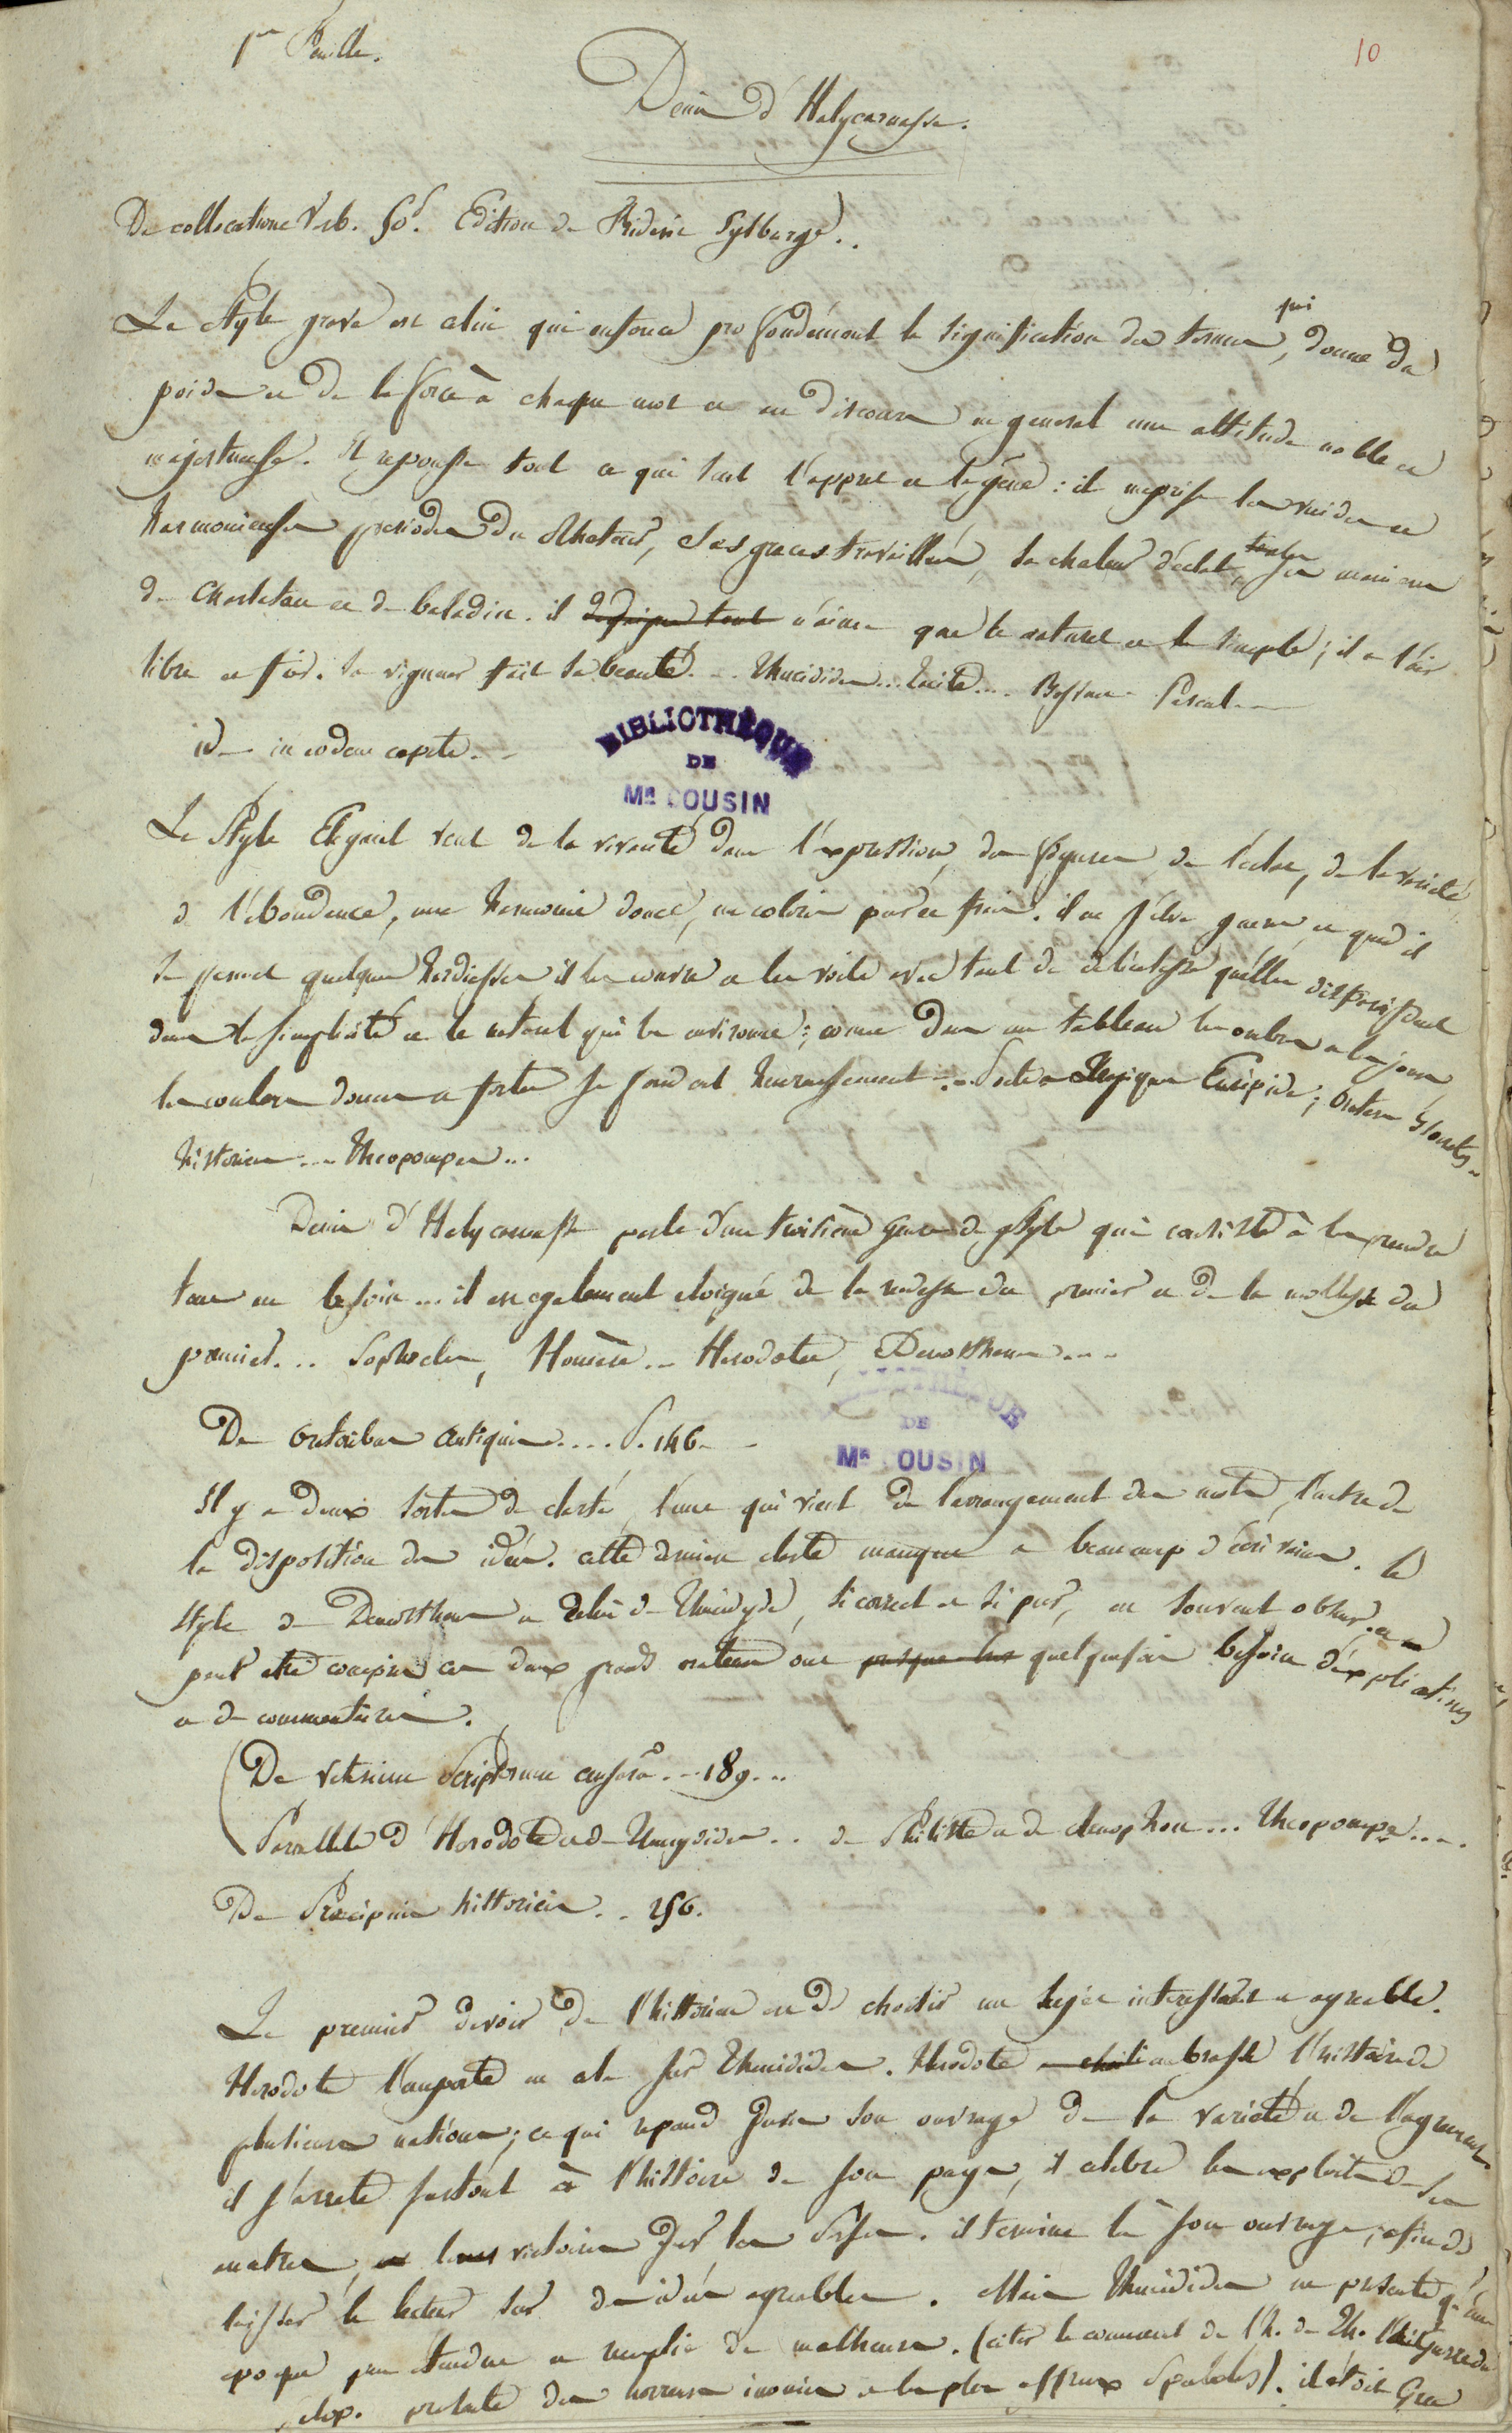 1re feuille.
10
Denis d'Halycarnasse.
De collocatione Verb. 50. Edition de Frideric Sylburge..
qui
Le style grave est celui qui enfonce profondément la signification des termes, donne du
poids et de la force à chaque mot et au discours en general une attitude noble et
majestueuse. Il repousse tout ce qui sent l'appret et la gêne: il meprise les vuides et
harmonieuses periodes du Rheteur, ses graces travaillées, sa chaleur d'éclat, toutes ses manieres
de charlatan et de baladin. il dedaigne tout n'aime que le naturel et le simple; il a l'air
libre et fier. sa vigueur fait sa beauté... Thucidides... Tacite... Bossuet - Pascal...
id - in eodem capite --
BIBLIOTHÈQUE
DE
MR COUSIN
Le Style Elegant veut de la vivacité dans l'expression, des figures, de l'éclat, de la varieté,
de l'abondance, une harmonie douce, un coloris pur et frais. il ne s'élève guere et quand il
se permet quelques hardiesses il les couvre et les voile avec tant de délicatesse qu'elles disparoissent
dans la simplicité et le naturel qui les environne: comme dans un tableau les ombres et les jours
les couleurs douces et fortes se fondent heureusement... Poete tragique Euripide; Orateur Isocrate.
historien... Theopompe...
Denis d'Halycarnasse parle d'un troisieme genre de style qui consiste à les prendre
tous au besoin... il est egalement eloigné de la rudesse du premier et de la mollesse du
premier... Sophocles, Homère.. Herodote, Demosthene....
BIBLIOTHÈQUE
DE
MR COUSIN
De Oratoribus antiquis.... P. 146..
Il y a deux sortes de clarté, l'une qui vient de l'arrangement des mots, l'autre de
la disposition des idées. cette derniere clarté manque à beaucoup d'écrivains. le
style de Demosthene et celui de Thucidyde, si correct et si pur, est souvent obscur et
peut etre compris ces deux grands orateurs ont presque tous quelquefois besoin d'explications
et de commentaires.
De veterum Scriptorum censura... 189...
Parallele d'Herodote et de Thucydides.. de Philiste et de Xenophon... Theopompe....
De Praecipuis historicis.. 256.
Le premier devoir de l'historien est de choisir un sujet interessant et agreable.
Herodote l'emporte en cela sur Thucidides. Herodote embrasse l'histoire de
plusieurs nations; ce qui repand dans son ouvrage de la varieté et de l'agrement.
il s'arrete surtout à l'histoire de son pays, il celebre les exploits de ses
ancetres, et leurs victoires sur les Perses. il termine là son ouvrage, afin de
laisser le lecteur sur des idées agreables. Mais Thucidides ne presente qu'une
epoque peu etendue et remplie de malheurs. (citer le comment de l'h. de Th. la guerre du
Pelop. presente des horreurs inouies et les plus affreux spectacles). il étoit Grec